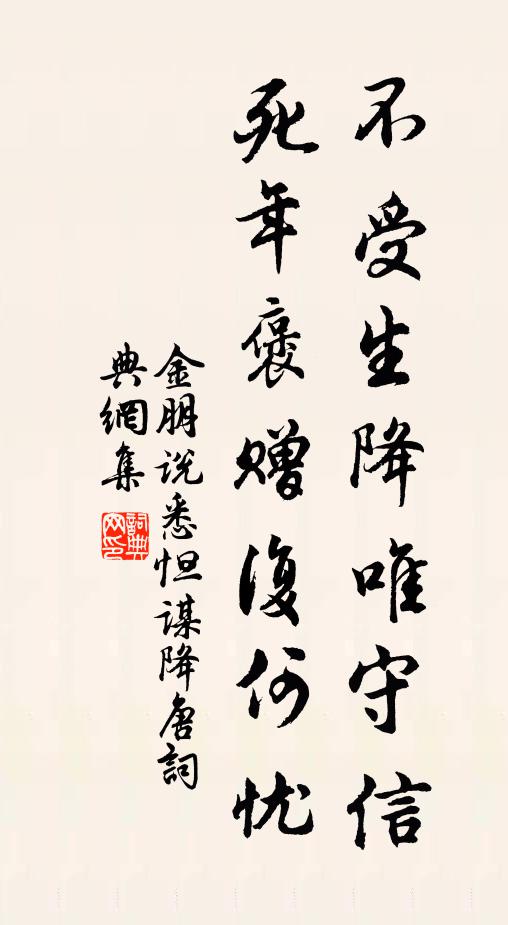 不受生降唯守信
死年褒赠復何忧
金朋说悉怛谋降唐詞
典網集
詞典
网印